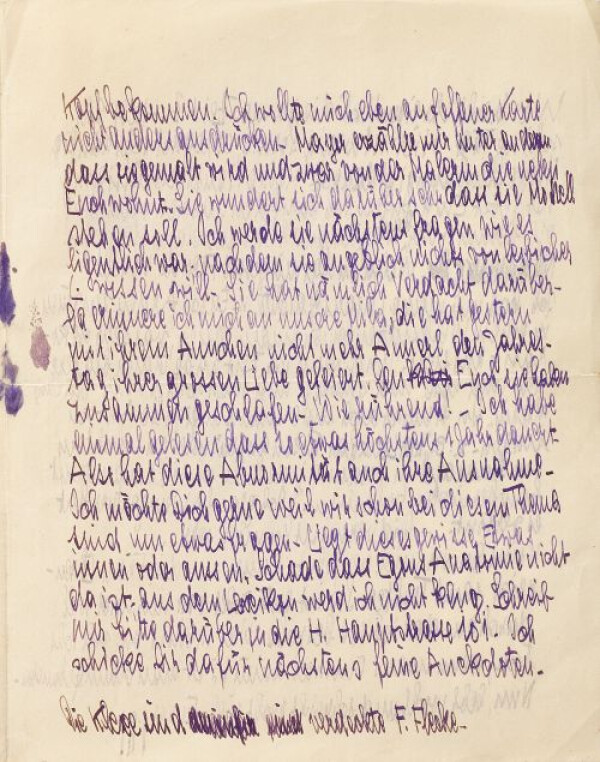 Kopf bekommen. Ich wollte mich eben auf offener Karte
nicht anders ausdrücken. Mayer erzählte mir unter anderem
dass sie gemalt wird und zwar von der Malerin die neben
Euch wohnt. Sie wundert sich darüber sehr dass sie Modell
stehen soll. Ich werde sie nächstens fragen wie es
eigentlich war, nachdem sie angeblich nichts von
wissen will. Sie hat nämlich Verdacht darüber.
Da erinnere ich mich an unsere die hat gestern
mit ihrem Annchen nicht mehr Annerl den Jahres-
tag ihrer grossen Liebe gefeiert. Bei Euch sie haben
zusammen geschlafen. Wie rührend! – Ich habe
einmal gelesen dass so etwas höchstens 1 Jahr dauert
Aber hat diese Abnormität auch ihre Ausnahme.
Ich möchte Dich gerne weil wir schon bei diesem Thema
sind um etwas fragen. Liegt dieses gewisse Etwas
innen oder aussen. Schade dass Egons Anatomie nicht
da ist aus dem Lexikon werd ich nicht klug. Schreib
mir bitte darüber in die H. Hauptstrasse 101. Ich
schicke Dir dafür nächstens feine Anekdoten.
Die Kleckse sind verdeckte F. Flecke.